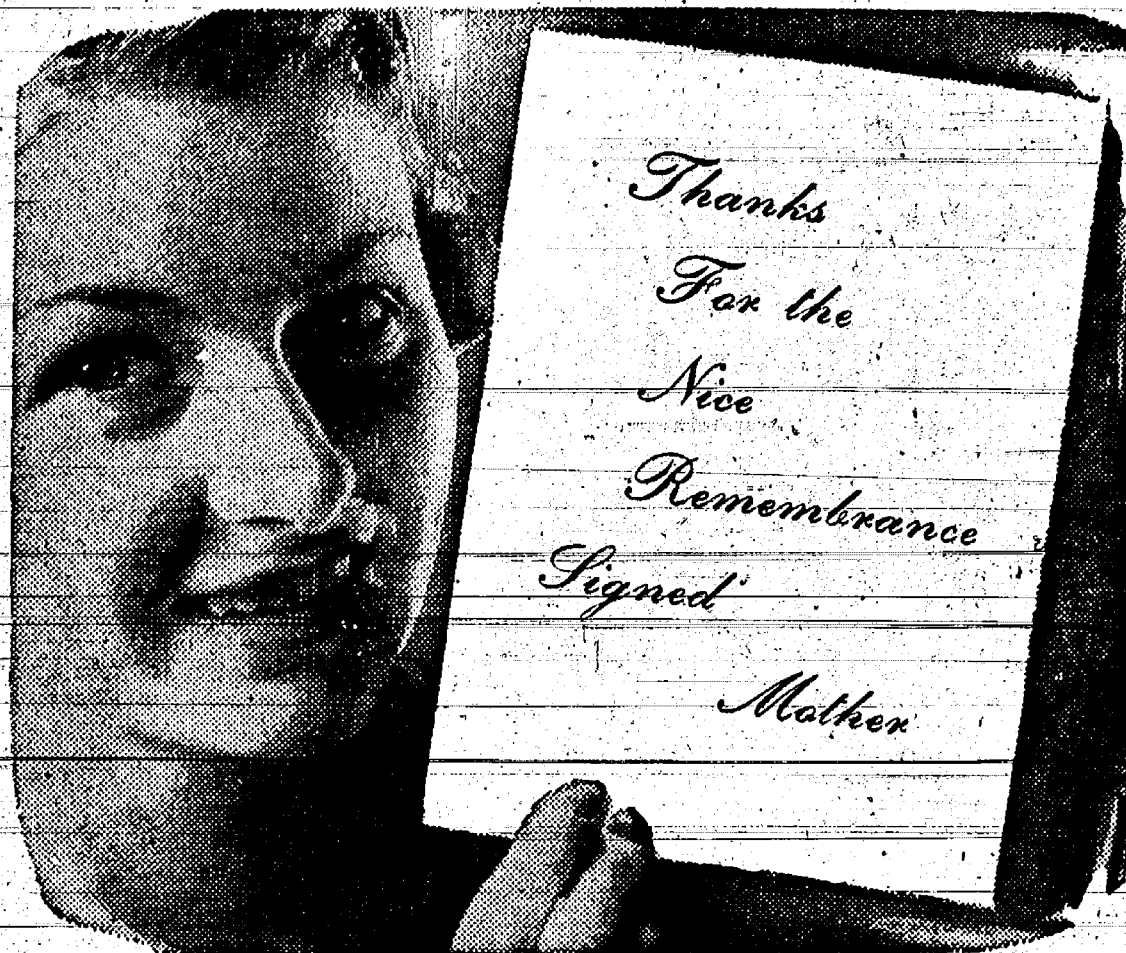 Thanks
For the
Nice
Remembrance
Signed
Mother